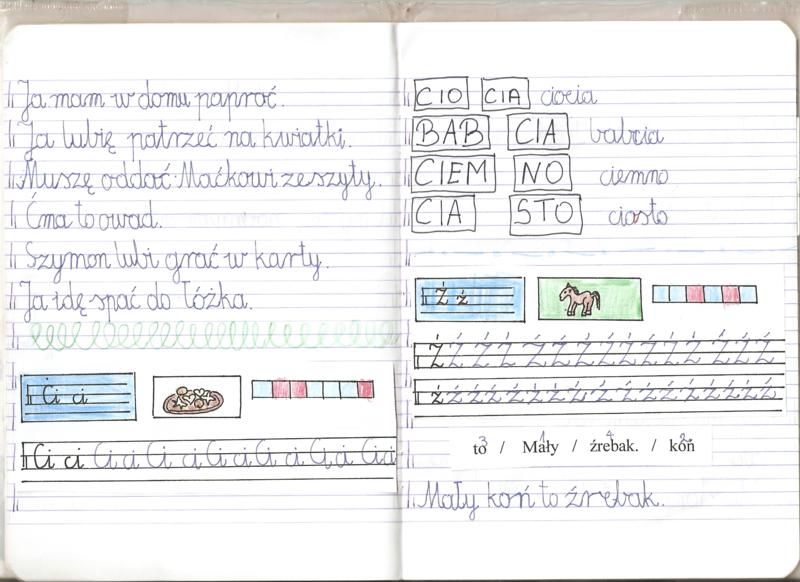 Ja mam w domu paproć.
Ja lubię patrzeć na kwiatki.
Muszę oddać Maćkowi zeszyty.
Ćma to owad.
Szymon lubi grać w karty.
Ja idę spać do łóżka.
Ci ci
Ci ci Ci ci Ci ci Ci ci Ci ci Ci ci Ci ci
CIO CIA ciocia
BAB CIA babcia
CIEM NO ciemno
CIA STO ciasto
Ź ź
Ź Ź Ź Ź Ź Ź Ź Ź Ź Ź Ź Ź Ź Ź Ź
ź ź ź ź ź ź ź ź ź ź ź ź ź ź ź ź ź ź
3 1 4 2
to / Mały / źrebak. / koń
Mały koń to źrebak.